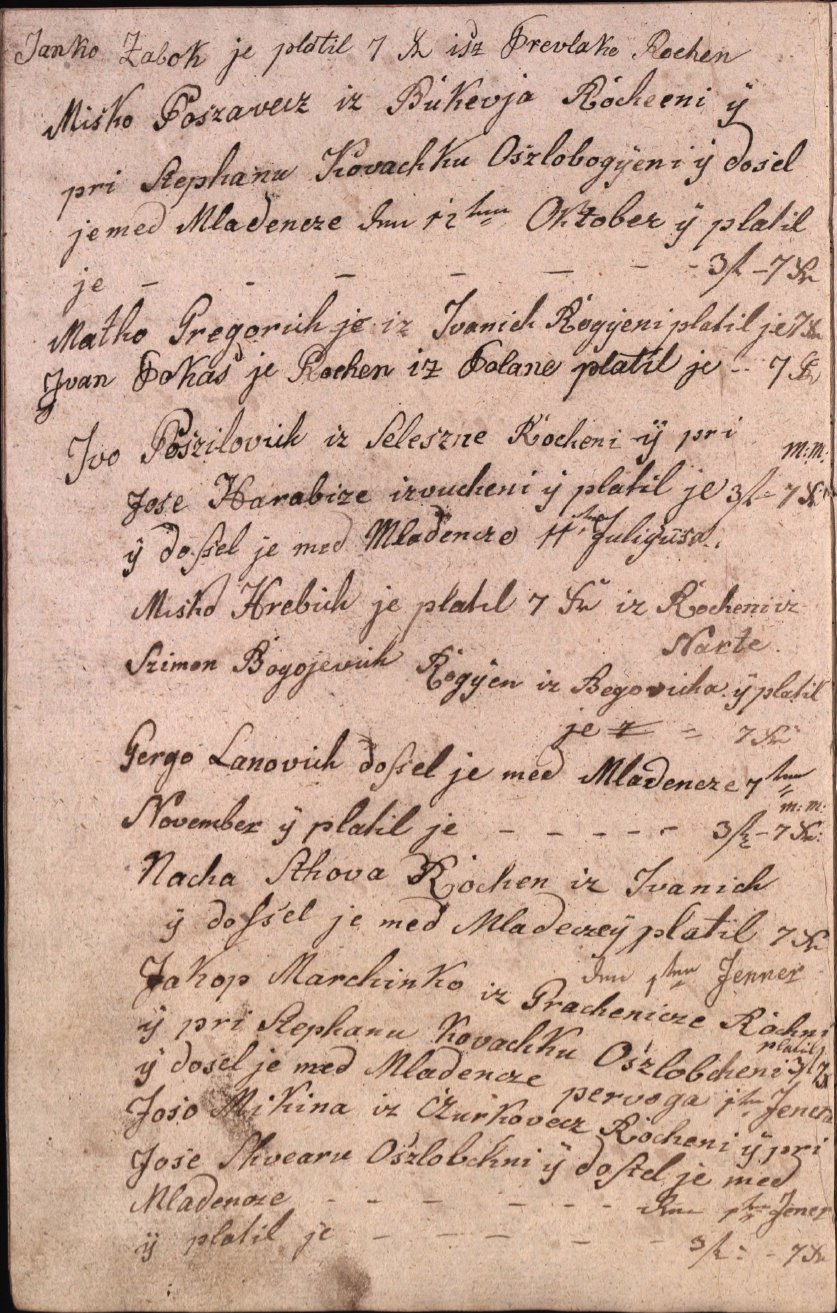 Janko Zabok je platil 7 Xr isz Prevlake Rochen
Misko Poszavecz iz Bukevja Rocheeni ÿ
pri Stephanu Kovachku Oszlobogÿeni ÿ dosel
je med Mladencze den 12ten Oktober ÿ platil
je – – – – – – – 3 f – 7 Xr
Matho Gregorich je iz Ivanich Rogÿeni platil je 7 Xr
Ivan Fokas je Rochen iz Polane platil je – 7 Xr
Ivo Poszilovich iz Seleszne Rocheni ÿ pri
m: m:
Jose Harabize izvucheni ÿ platil je 3 f – 7 Xr
ÿ doszel je med Mladencze 11ten Juligusa.
Misko Hrebich je platil 7 Xr iz Rocheni iz
Narte
Szimon Bogojevich Rogÿen iz Begovicha ÿ platil
je = 7 Xr
Gergo Lanovich doszel je med Mladencze 7ten
m: m:
November ÿ platil je – – – – – 3 f – 7 Xr:
Nacha Sthova Rochen iz Ivanich
ÿ doszel je med Mladeczeÿ platil 7 Xr
den 1ten Jenner
Jakop Marchinko iz Grachenicze Rochni
ÿ pri Stephanu Kovachku Oszlobcheni 3 f 7 Xr
platil
ÿ dosel je med Mladencze pervoga 1ten Jenera
Joso Mikina iz Czurkovecz Rocheni ÿ pri
Jose Shvearu Oszlobchni ÿ doszel je med
Mladencze – – – – – – den 1ten Jener
ÿ platil je – – – – – 3 f: – 7 Xr